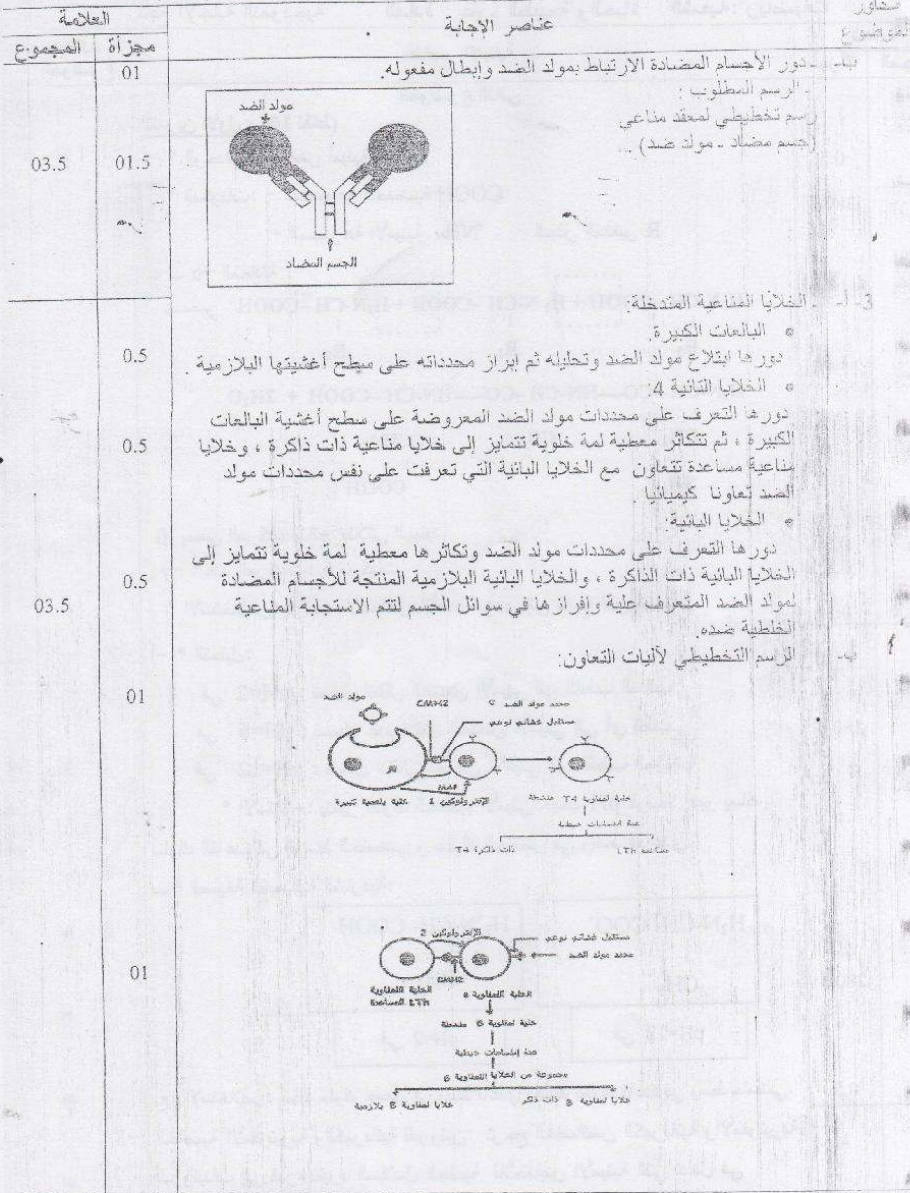 العلامة
عناصر الإجابة
محاور
الموضوع
المجموع
مجزأة
ب- دور الأجسام المضادة الارتباط بمولد الضد وإبطال مفعوله.
01
- الرسم المطلوب :
رسم تخطيطي لمعقد مناعي
(جسم مضاد - مولد ضد) .
مولد الضد
الجسم المضاد
01.5
03.5
3- أ- الخلايا المناعية المتدخلة:
• البالعات الكبيرة.
دورها ابتلاع مولد الضد وتحليله ثم ابراز محدداته على سطح أغشيتها البلازمية .
0.5
• الخلايا التائية 4
دورها التعرف على محددات مولد الضد المعروضة على سطح أغشية البالعات
الكبيرة ، ثم تتكاثر معطية لمة خلوية تتمايز إلى خلايا مناعية ذات ذاكرة ، وخلايا
0.5
مناعية مساعدة تتعاون مع الخلايا البائية التي تعرفت على نفس محددات مولد
الضد تعاونا كيميائيا .
• الخلايا البائية:
دورها التعرف على محددات مولد الضد وتكاثرها معطية لمة خلوية تتمايز إلى
الخلايا البائية ذات الذاكرة ، والخلايا البائية البلازمية المنتجة للأجسام المضادة
0.5
لمولد الضد المتعرف علية وإفرازها في سوائل الجسم لتتم الاستجابة المناعية
03.5
الخلطية ضده.
ب- الرسم التخطيطي لآليات التعاون:
01
مولد الضد
CMH2
محدد مولد الضد
مستقبل غشائي نوعي
الأنترولوكين 1
خلية بلعمية كبيرة
خلية لمفاوية T4 منشطة
عدة انقسامات خيطية
ذات ذاكرة T4
مساعدة LTh
01
الأنترولوكين 2
مستقبل غشائي نوعي
محدد مولد الضد
CMH2
الخلية اللمفاوية
LTh المساعدة
الخلية اللمفاوية B
خلية لمفاوية B منشطة
عدة إنقسامات خيطية
مجموعة من الخلايا اللمفاوية B
خلايا لمفاوية B بلازمية
خلايا لمفاوية B ذات ذاكرة